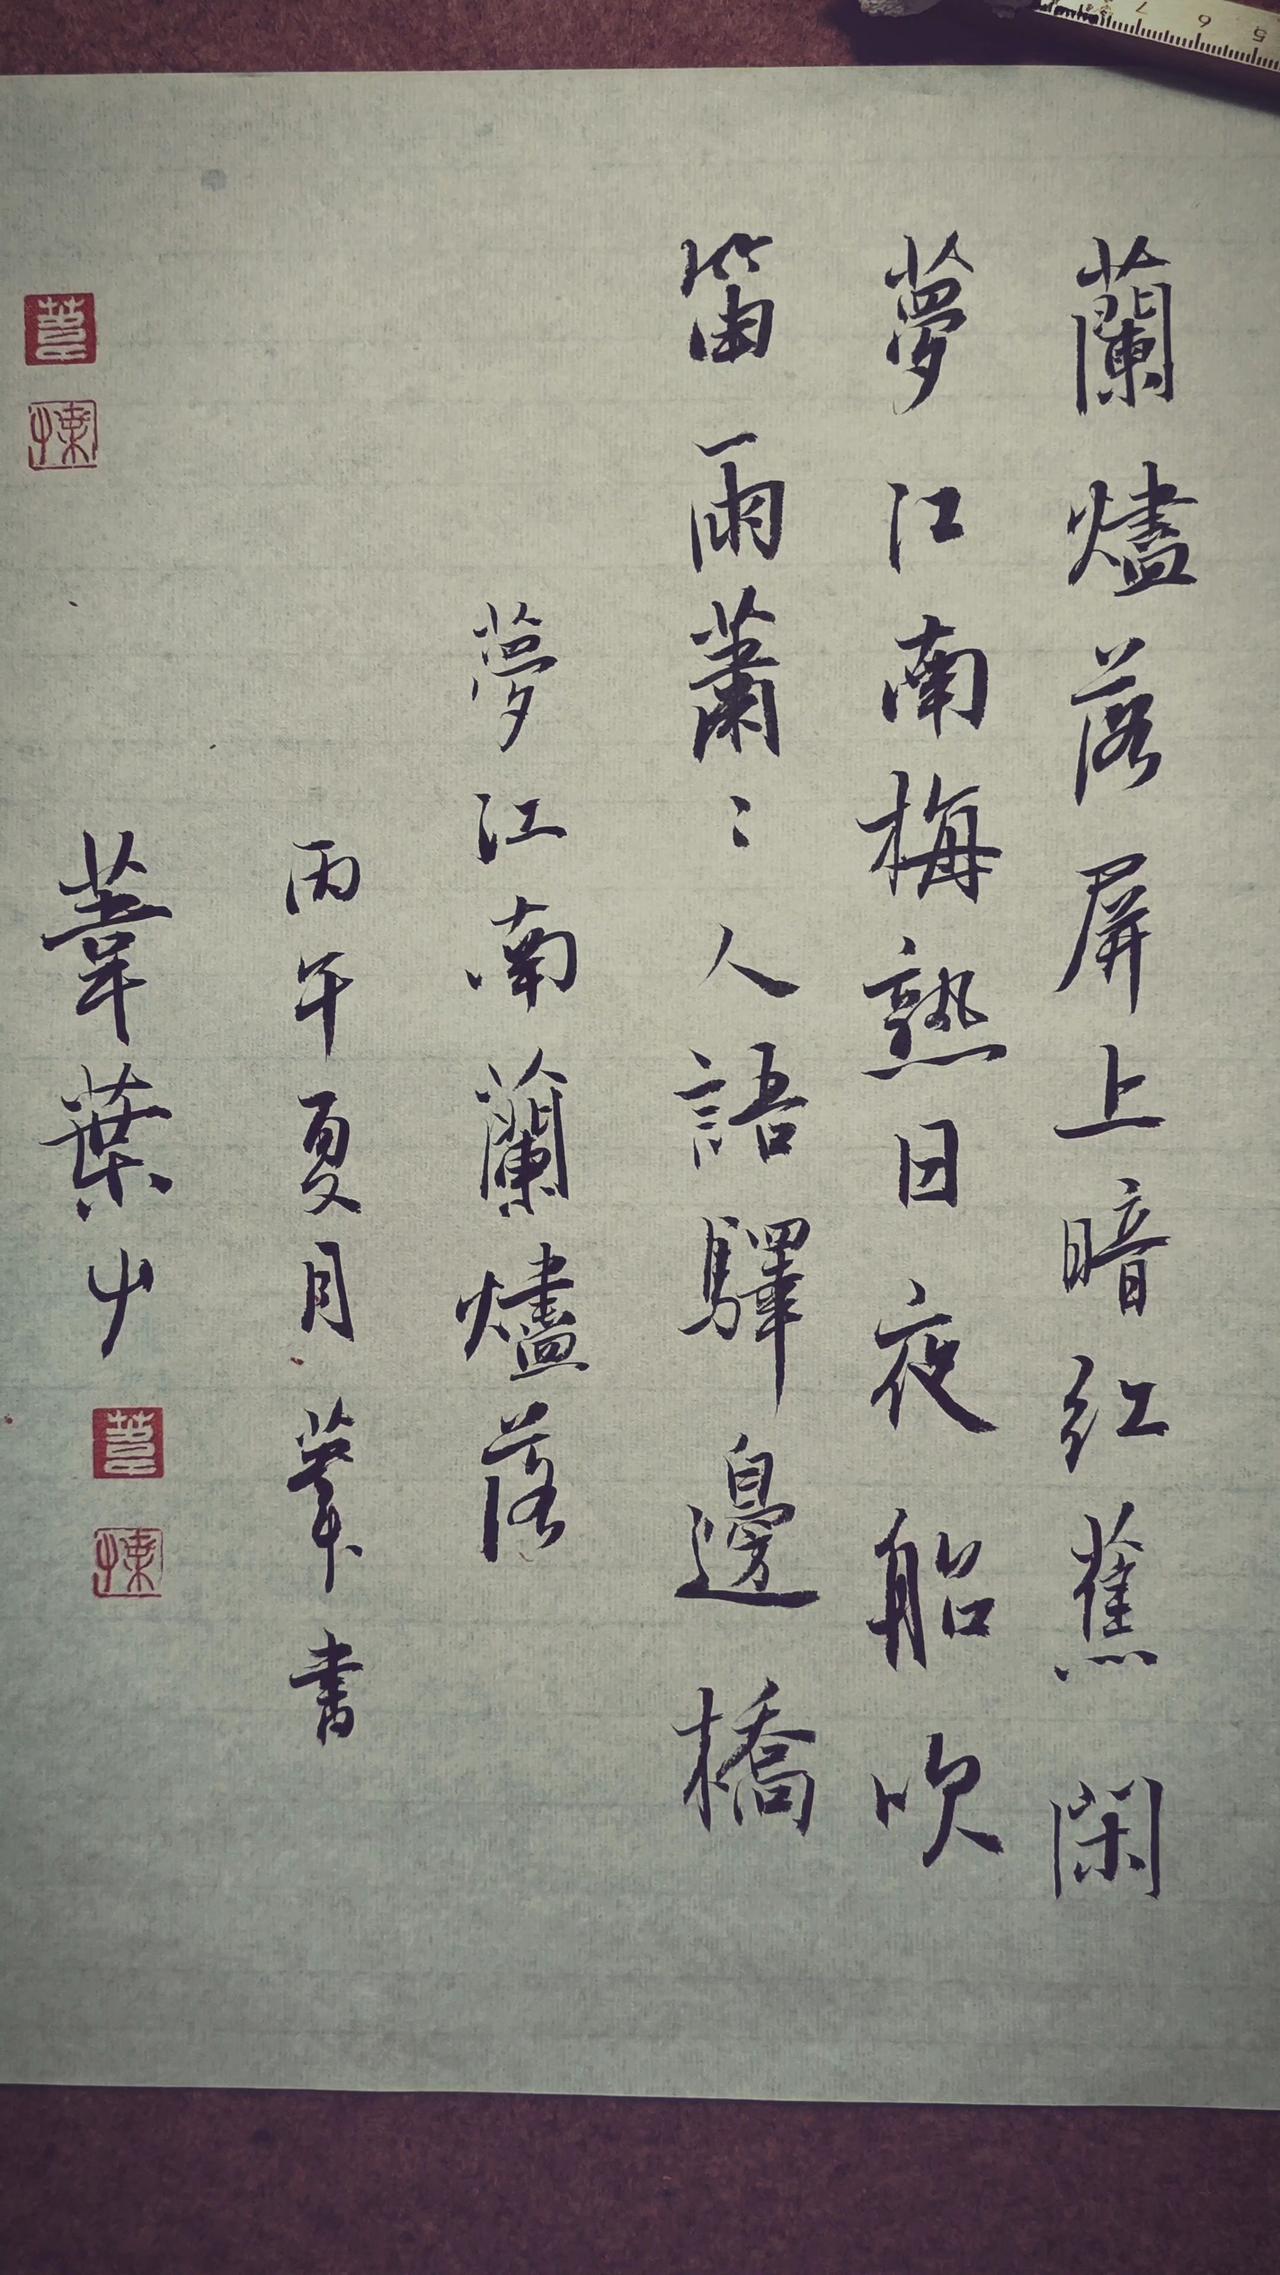 蘭燼落屏上暗红蕉閑
夢江南梅熟日夜船吹
笛雨蕭〻人語驛邊橋
夢江南蘭燼落
丙午夏月 書
葉
7 6 5